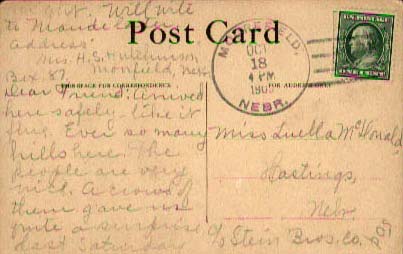 night. Will write
to Maude later
Address:
Mrs. H. S. Hutchinson
Box 87. Monfield, Nebr
Post Card
OCT
18
4 PM
NEBR.
THIS SPACE FOR CORRESPONDENCE
FOR ADDRESS ONLY
Dear Friend: Arrived
here safely. like it
fine. Ever so many
hills here. The
people are very
nice. A crowd of
them gave us
quite a surprise
last Saturday
Miss Luella McDonald
Hastings,
Nebr.
c/o Stein Bros. Co.